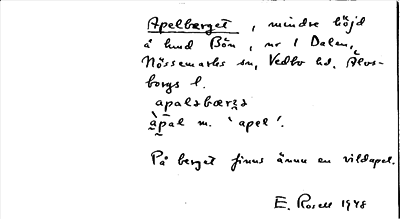 Apelberget, mindre höjd
å hmd Bön, nr 1 Dalen,
Nössemarks sn, Vedbo hd, Älvs-
borgs l.
apaləbærgə
àpal m. 'apel'.
På berget finns ännu en vildapel.
E. Rosell 1948